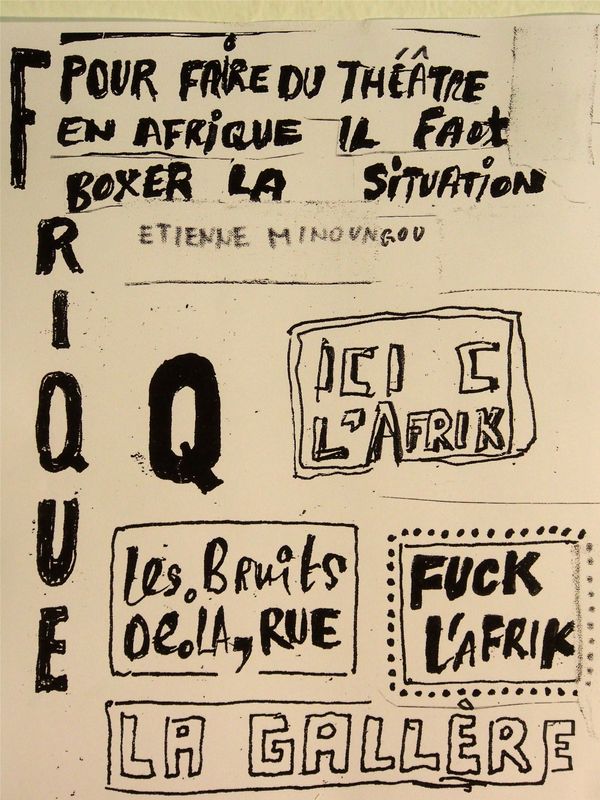 POUR FAIRE DU THÉÂTRE
EN AFRIQUE IL FAUT
BOXER LA SITUATION
ETIENNE MINOUNGOU
FRIQUE
Q
ICI C
L'AFRIK
Les.BRuits
De.LA, RUE
FUCK
L'AFRIK
LA GALLÈRE